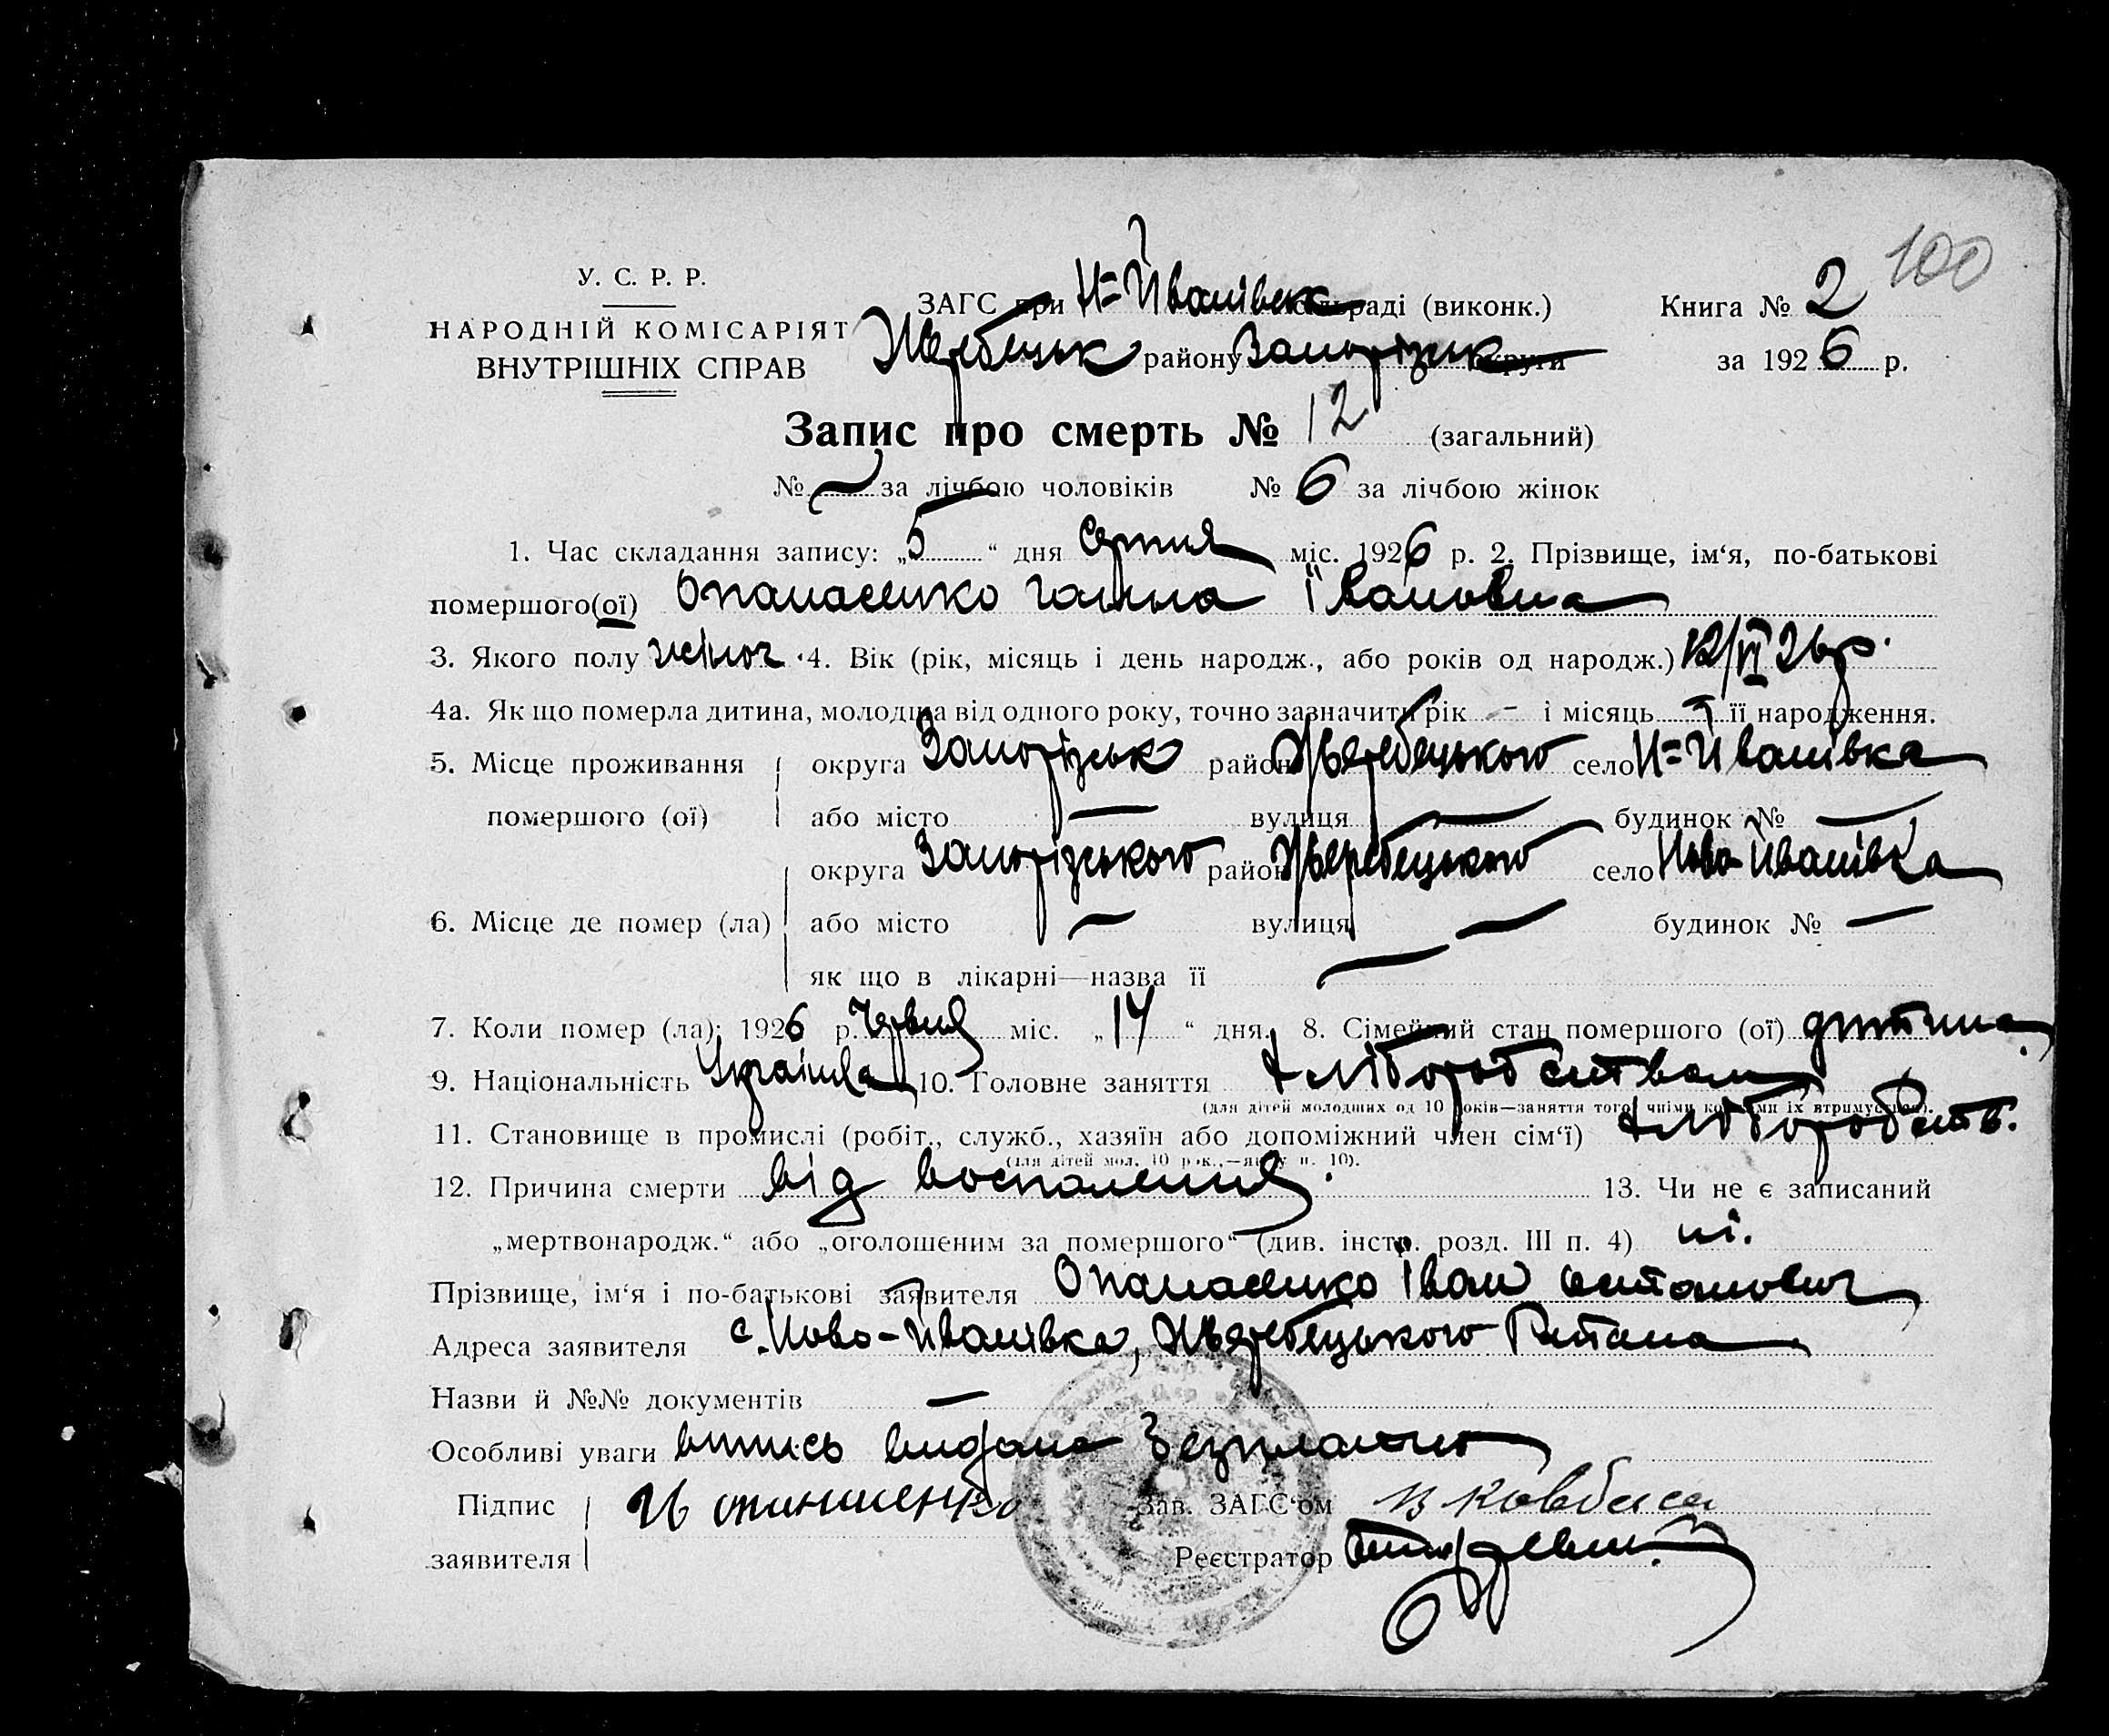 100
У. С. Р. Р.
НАРОДНІЙ КОМІСАРІЯТ
ВНУТРІШНІХ СПРАВ
ЗАГС при Н=Иванівськ сільраді (виконк.)
Жеребецьк району Запорізьк округи
Книга № 2
за 1926 р.
Запис про смерть № 12 (загальний)
№ — за лічбою чоловіків № 6 за лічбою жінок
1. Час складання запису: „5“ дня Серпня міс. 1926 р. 2. Прізвище, ім‘я, по-батькові
помершого(ої) Опанасенко Ганна Івановна
3. Якого полу жіноч. 4. Вік (рік, місяць і день народж., або років од народж.) 12/VI 26 р.
4а. Як що померла дитина, молодша від одного року, точно зазначити рік - і місяць її народження.
5. Місце проживання помершого (ої) округа Запорізськ район Жеребецького село Н=Иванівка
або місто — вулиця — будинок № —
6. Місце де помер (ла) округа Запорізького район Жеребецького село Ново-Иванівка
або місто — вулиця — будинок № —
як що в лікарні—назва її —
7. Коли помер (ла): 1926 р. Червня міс. „14“ дня. 8. Сімейний стан помершого (ої) дитина.
9. Національність Украінка 10. Головне заняття Хліборобством
(для дітей молодших од 10 років—заняття того, чиїми коштами їх втримується).
11. Становище в промислі (робіт., служб., хазяїн або допоміжний член сім‘ї) Хліборобств.
(для дітей мол. 10 рок.,—як у п. 10).
12. Причина смерти від воспаления. 13. Чи не є записаний
„мертвонародж.“ або „оголошеним за помершого“ (див. інстр. розд. III п. 4) ні.
Прізвище, ім‘я і по-батькові заявителя Опанасенко Іван
Адреса заявителя с. Ново-Иванівка, Жеребецького Района
Назви й №№ документів —
Особливі уваги випись видана безплатно
Підпис заявителя
Зав. ЗАГС‘ом В Ковбаса
Реєстратор